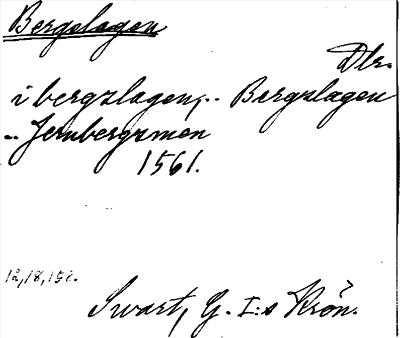 Bergslagen
Dlr.
i bergzlagen, .. Bergzlagen
.. Jernbergzmen
1561.
12, 18, 152.
Swart, G. I:s Krön.